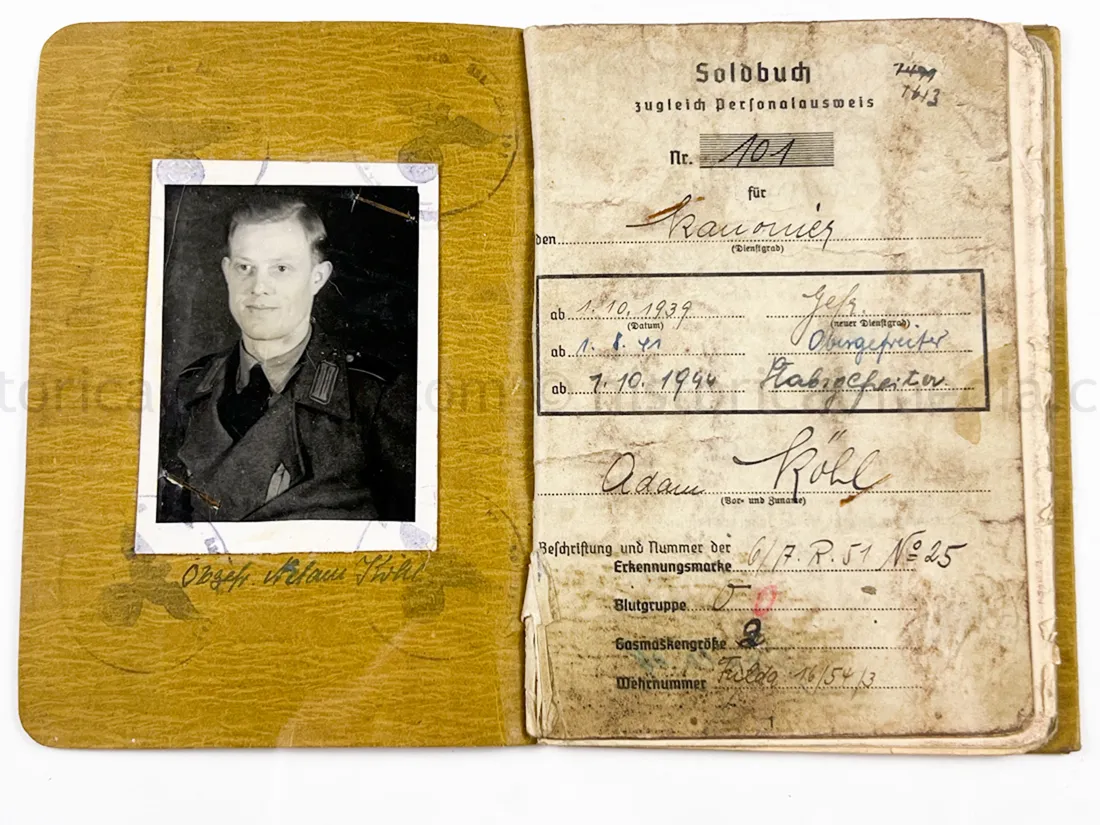 Obgefr. Adam Köhl
Soldbuch
zugleich Personalausweis
Nr. 101
für
den Kanonier
(Dienstgrad)
ab 1.10.1939 Gefr.
(Datum) (neuer Dienstgrad)
ab 1.8.41 Obergefreiter
ab 1.10.1944 Stabsgefreiter
Adam Köhl
(Vor- und Zuname)
Beschriftung und Nummer der
Erkennungsmarke 6/7.R.51 No 25
Blutgruppe O
Gasmaskengröße 2
Wehrnummer Fulda 16/54/3
1